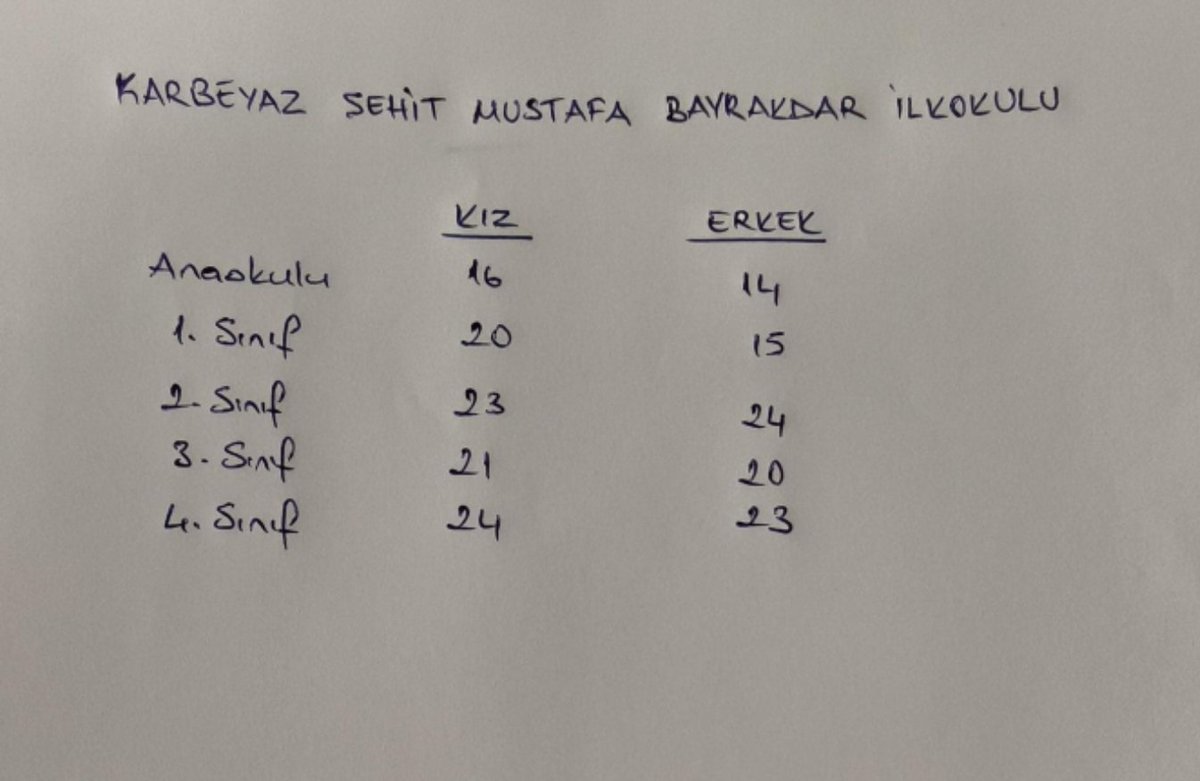 KARBEYAZ SEHİT MUSTAFA BAYRAKDAR İLKOKULU
KIZ ERKEK
Anaokulu 16 14
1. Sınıf 20 15
2. Sınıf 23 24
3. Sınıf 21 20
4. Sınıf 24 23